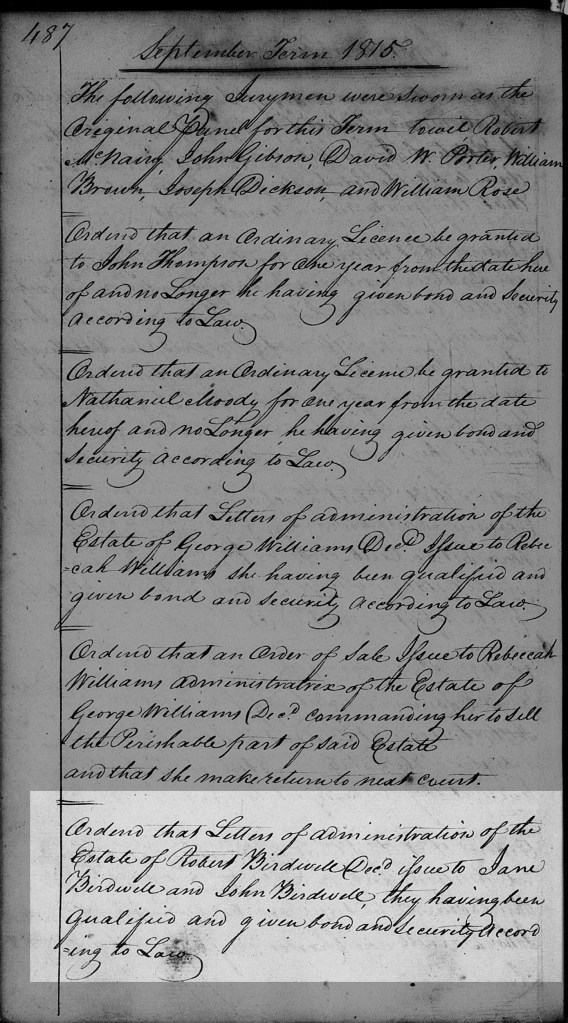 487
September Term 1815.
The following Jurymen were sworn as the
Original Panel for this Term towit, Robert
McNairy, John Gibson, David W. Porter, William
Brown, Joseph Dickson, and William Rose
Ordend that an Ordinary Licence be granted
to John Thompson for one year from the date here
of and no Longer he having given bond and Security
according to Law.
Ordend that an Ordinary Licence be granted to
Nathaniel Moody for one year from the date
hereof and no Longer he having given bond and
Security according to Law.
Ordend that Letters of administration of the
Estate of George Williams Decd. Issue to Rebec
=cah Williams she having been qualified and
given bond and Security according to Law.
Ordend that an Order of Sale Issue to Rebeccah
Williams administratrix of the Estate of
George Williams Decd. commanding her to sell
the Perishable part of said Estate
and that she make return to next court.
Ordend that Letters of administration of the
Estate of Robert Birdwell Decd issue to Jane
Birdwell and John Birdwell they having been
qualified and given bond and security accord
=ing to Law